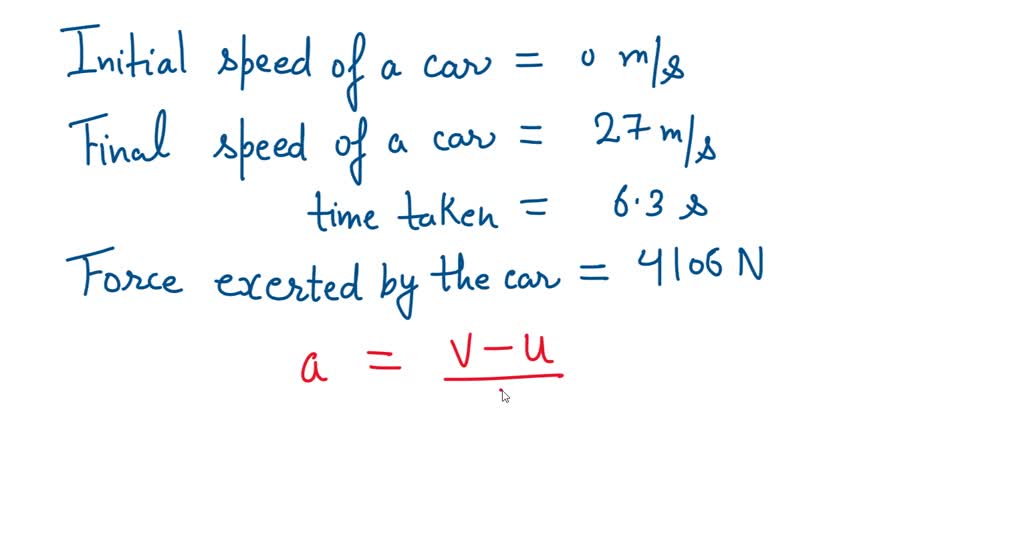 Initial speed of a car = 0 m/s
Final speed of a car = 27 m/s
time taken = 6.3 s
Force exerted by the car = 4106 N
a = v-u